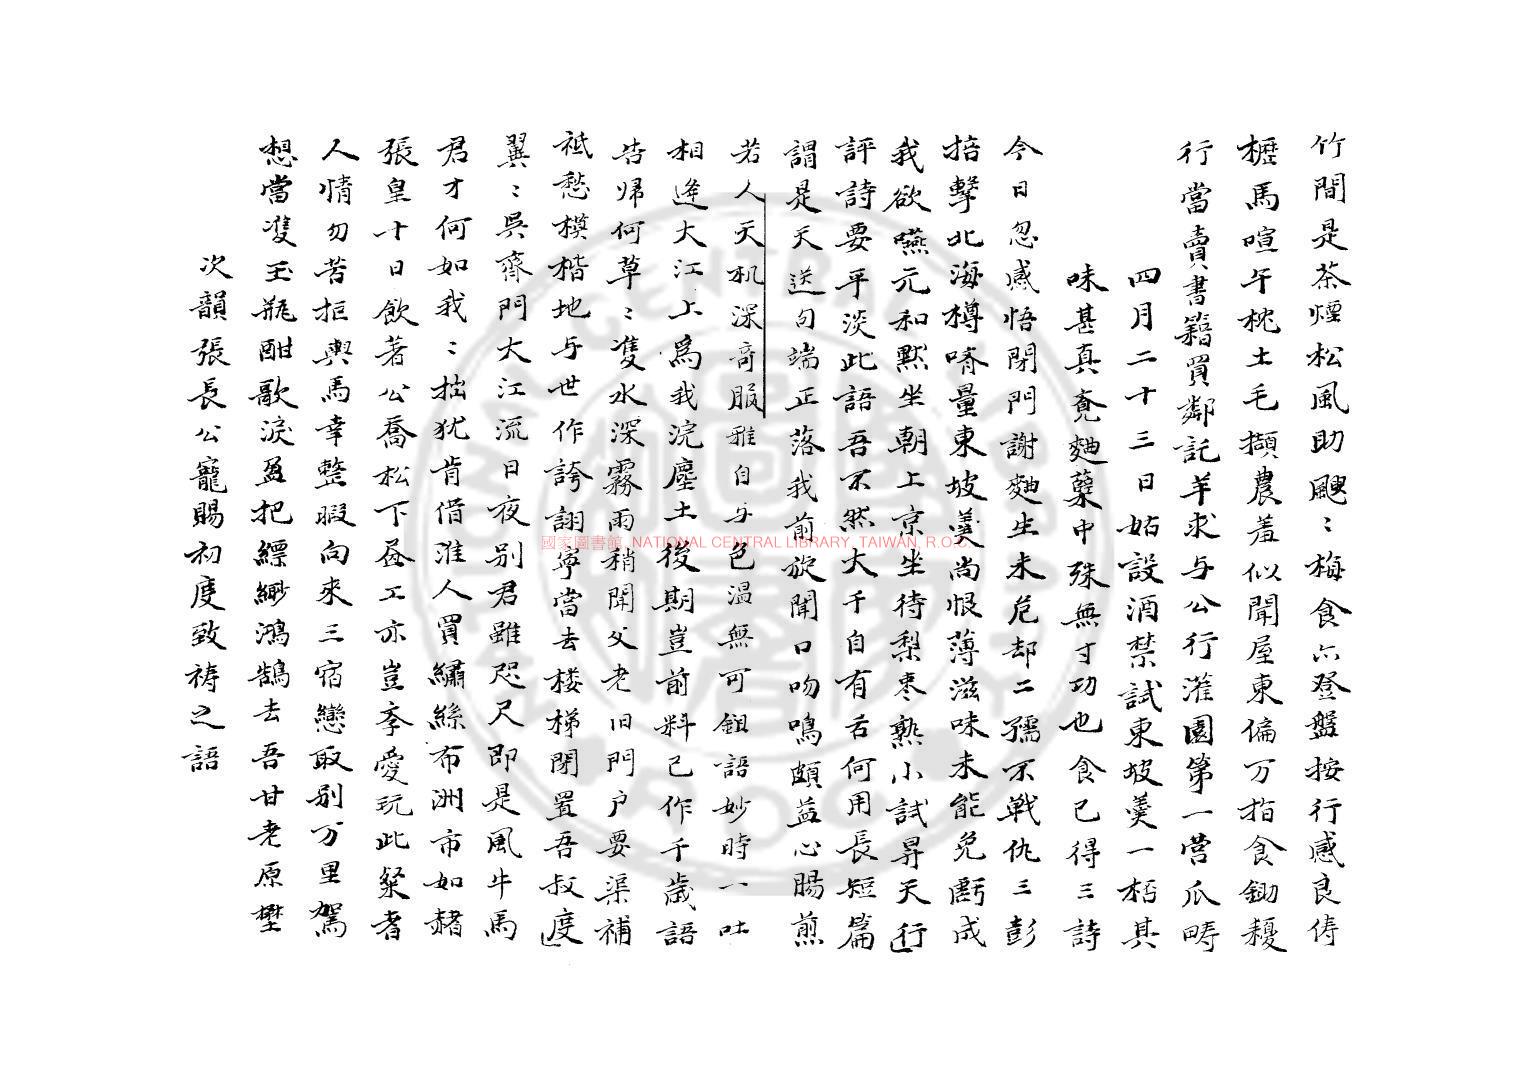 竹間是茶煙松風助颼〻梅食六登盤按行感良侍
櫪馬喧午枕土毛擷農羞似聞屋東偏万指食鋤耰
行當賣書籍買鄰託羊求与公行灌園第一營瓜疇
四月二十三日姑設酒禁試東坡羹一桮其
味甚真覺麯蘗中殊無寸功也食已得三詩
今日忽感悟閉門謝麯生未危却二孺不戰仇三彭
掊擊北海樽嗜量東坡羹尚恨薄滋味未能免虧成
我欲嚥元和默坐朝上京坐待梨枣熟小試昇天行
評詩要平淡此語吾不然大千自有舌何用長短篇
謂是天送句端正落我前旋聞口吻鳴頗益心腸煎
若人天机深奇服雅自与色温無可鉏語妙時一吐
相逢大江上爲我浣塵土後期豈前料已作千歲語
告歸何草〻隻水深霧雨稍聞父老旧門户要渠補
祗愁模楷地与世作誇詡寧當去楼梯閉置吾叔度
翼〻吳齊門大江流日夜别君雖咫尺即是風牛馬
君才何如我〻拙犹肯借淮人買繡絲布洲市如赭
張皇十日飲著公喬松下昼工亦豈孝愛玩此粲者
人情勿苦拒輿馬幸整暇向來三宿戀取别万里駕
想當隻玉瓶酣歌淚盈把縹緲鴻鵠去吾甘老原壄
次韻張長公寵賜初度致祷之語
國家圖書館, NATIONAL CENTRAL LIBRARY, TAIWAN, R.O.C